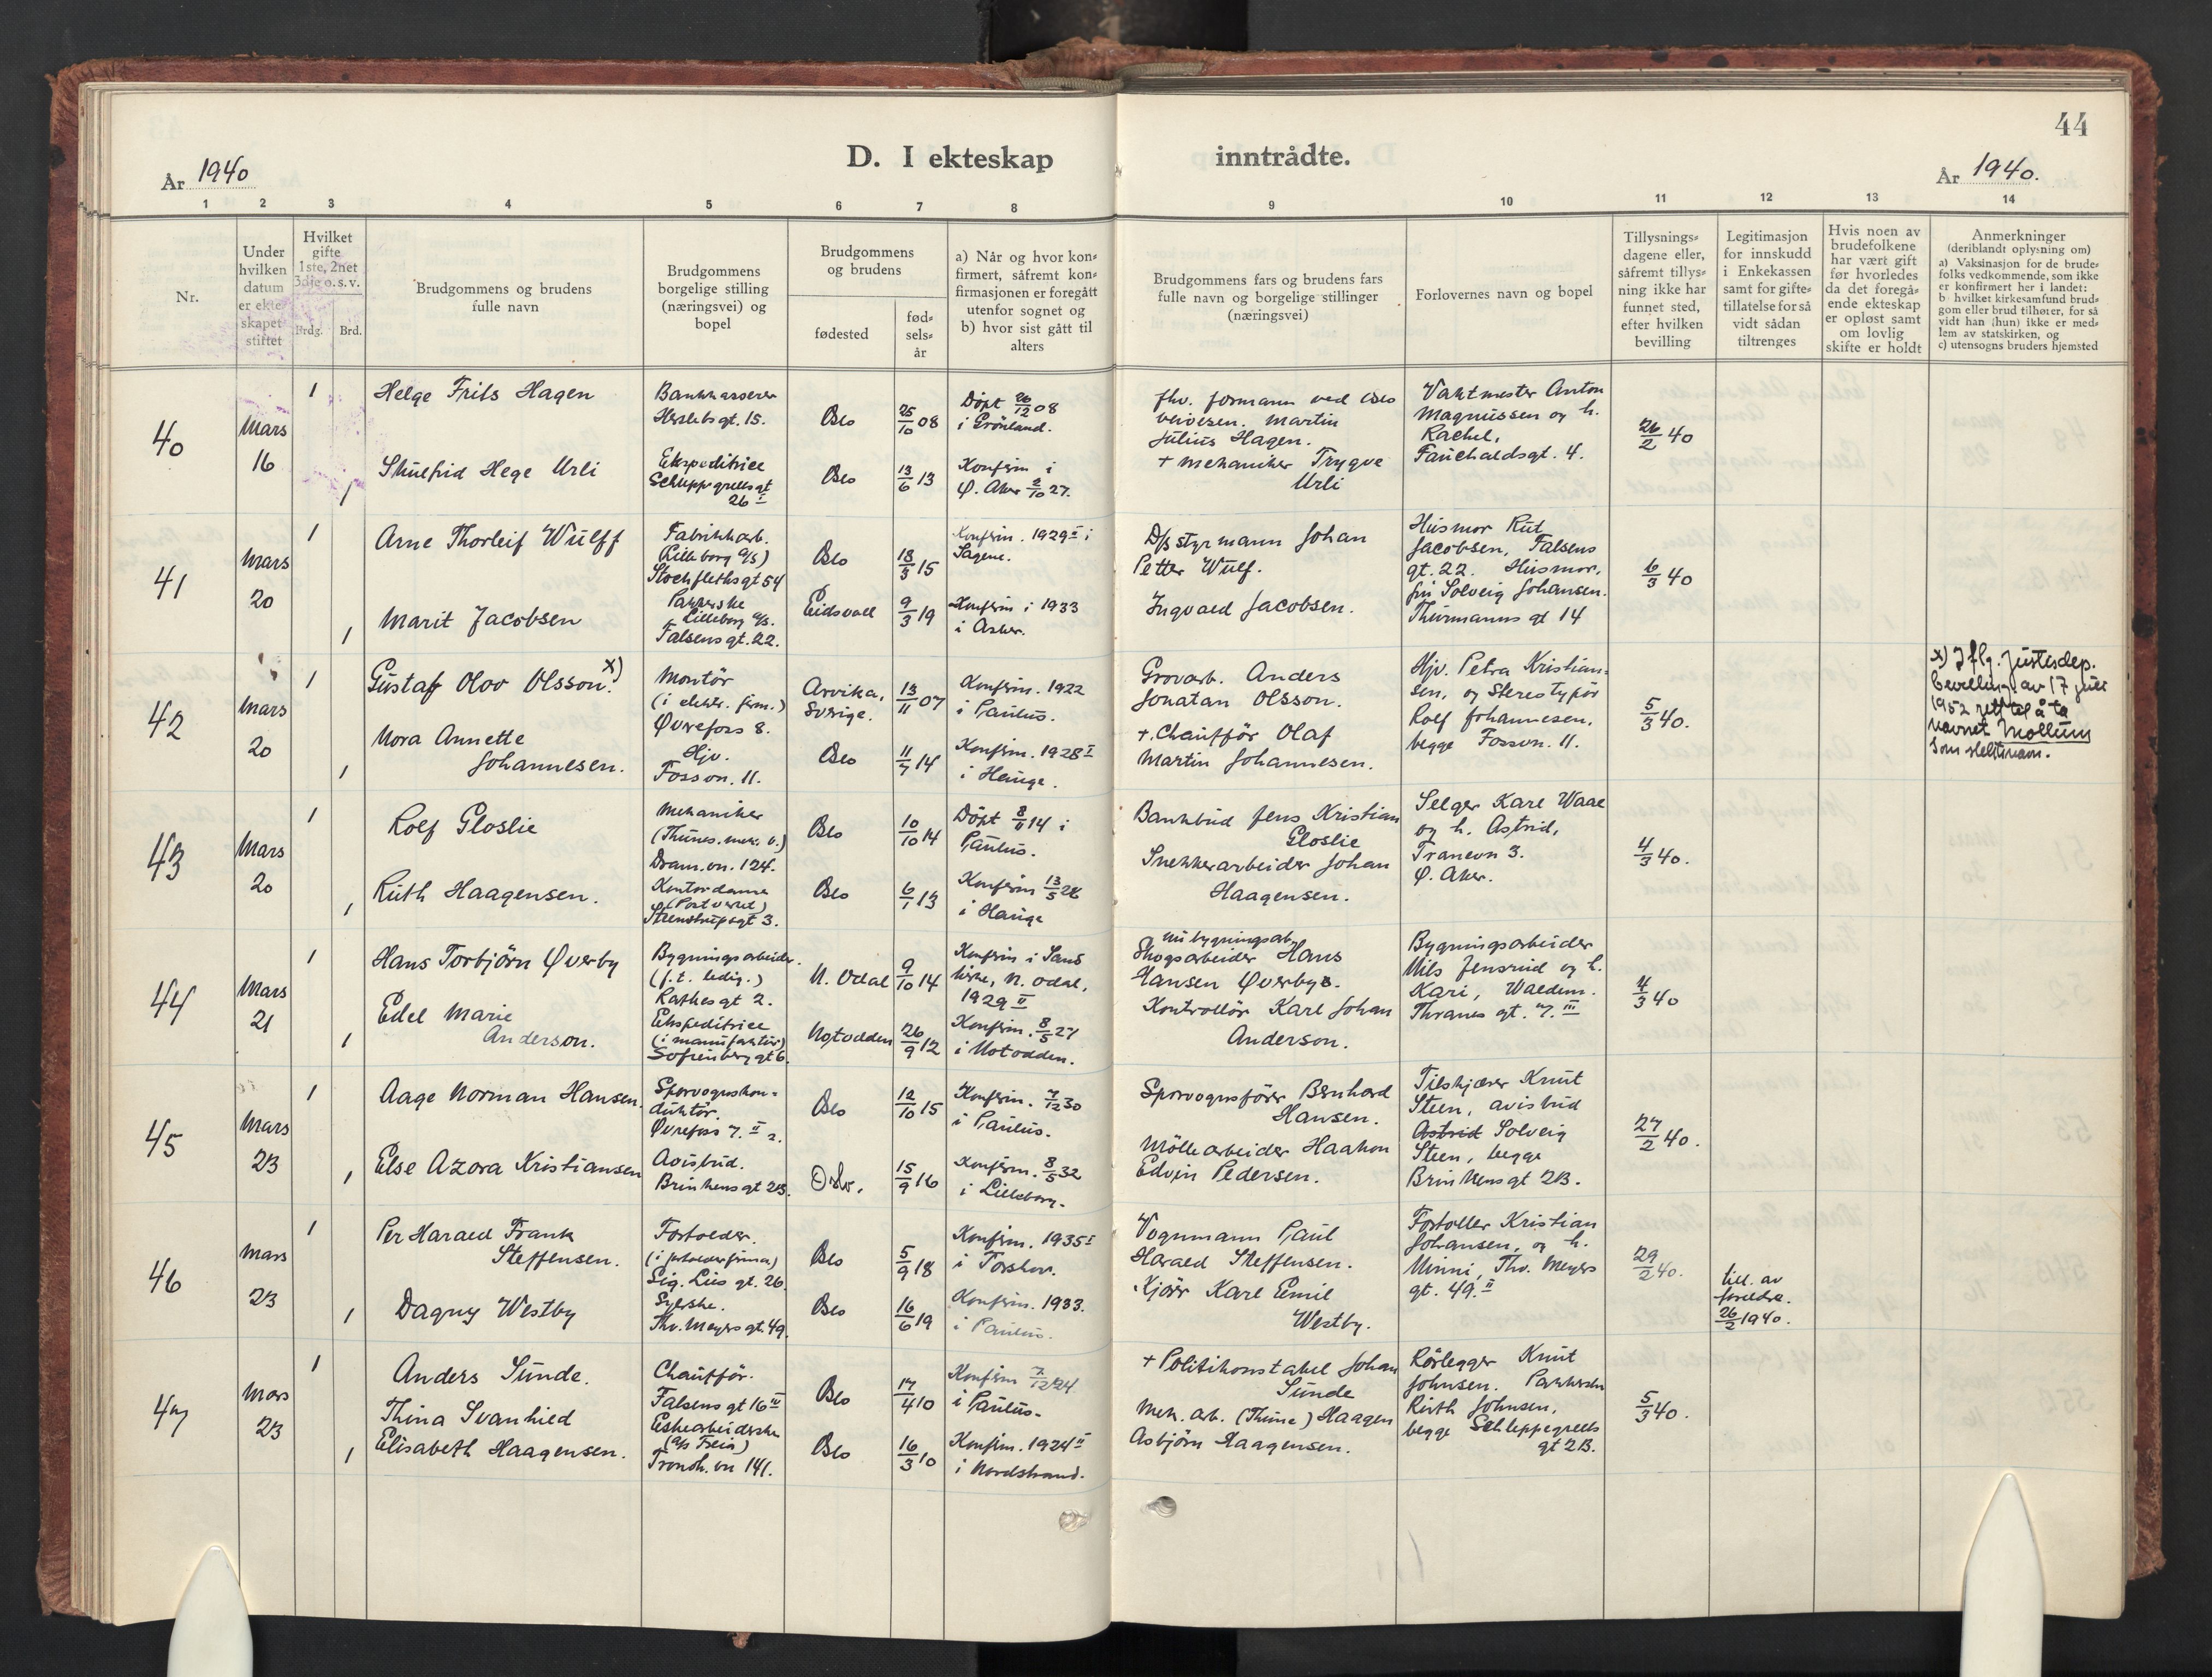 44
D. I ekteskap inntrådte.
År 1940
År 1940.
1 2 3 4 5 6 7 8 9 10 11 12 13 14
Nr.
Under
hvilken
datum
er ekte-
skapet
stiftet
Hvilket
gifte
1ste, 2net
3dje o.s.v.
Brdg. Brd.
Brudgommens og brudens
fulle navn
Brudgommens
borgelige stilling
(næringsvei) og
bopel
Brudgommens
og brudens
fødested
fød-
sels-
år
a) Når og hvor kon-
firmert, såfremt kon-
firmasjonen er foregått
utenfor sognet og
b) hvor sist gått til
alters
Brudgommens fars og brudens fars
fulle navn og borgelige stillinger
(næringsvei)
Forlovernes navn og bopel
Tillysnings-
dagene eller,
såfremt tillys-
ning ikke har
funnet sted,
efter hvilken
bevilling
Legitimasjon
for innskudd
i Enkekassen
samt for gifte-
tillatelse for så
vidt sådan
tiltrenges
Hvis noen av
brudefolkene
har vært gift
før hvorledes
da det foregå-
ende ekteskap
er opløst samt
om lovlig
skifte er holdt
Anmerkninger
(deriblandt oplysning om)
a) Vaksinasjon for de brude-
folks vedkommende, som ikke
er konfirmert her i landet:
b) hvilket kirkesamfund brud-
gom eller brud tilhører, for så
vidt han (hun) ikke er med-
lem av statskirken, og
c) utensogns bruders hjemsted
40
Mars
16
1
Helge Frits Hagen
Bankkasserer
Herslebsgt. 15.
Oslo
25/10 08
Døpt 26/12 08
i Grönland.
fhv. formann ved Oslo
veivesen. Martin
Julius Hagen.
Vaktmester Anton
Magnussen og h.
Rachel,
Fauchaldsgt. 4.
26/2 40
1
Skulfrid Hege Urli
Ekspeditrice
Schleppegrellsgt
26 I
Oslo
13/6 13
Konfirm i
Ø. Aker 2/10 27.
+ Mekaniker Trygve
Urli
41
Mars
20
1
Arne Thorleif Wulff
Fabrikkarb.
(Lilleborg a/s)
Stockflethsgt 54
Oslo
18/3 15
Konfirm. 1929 II i
Sagene.
D/s styrmann Johan
Petter Wulf.
Husmor Rut
Jacobsen, Falsens
gt. 22. Husmor,
fru Solveig Johansen.
Thurmanns gt 14
6/3 40
1
Marit Jacobsen
Pakkerske
Lilleborg a/s.
Falsensgt. 22.
Eidsvoll
9/3 19
Konfirm i 1933
i Asker.
Ingvald Jacobsen.
42
Mars
20
1
Gustaf Olov Olsson. x)
Montör
(i elektr. firm.)
Øvrefoss 8.
Arvika,
Sverige.
13/11 07
Konfirm. 1922
i Paulus.
Grovarb. Anders
Jonatan Olsson.
Hjv. Petra Kristian-
sen, og Stereotypör
Rolf Johannesen,
begge Fossvn. 11.
5/3 40.
x) Iflg. Justisdep.
bevilling av 17 juli
1952 rett til å ta
navnet Mollum
som slektsnavn.
1
Nora Annette
Johannesen.
Hjv.
Fossvn. 11.
Oslo
11/7 14
Konfirm. 1928 I
i Hauge.
+. Chauffør Olaf
Martin Johannesen.
43
Mars
20
1
Rolf Gloslie
Mekaniker
(Thunes. mek. v.)
Dram.vn. 124.
Oslo
10/10 14
Döpt 14 i
Paulus.
Bankbud Jens Kristian
Gloslie
Selger Kare Waae
og h. Astrid,
Tranevn 3.
Ø. Aker.
4/3 40.
1
Ruth Haagensen.
Kontordame
(Postverket)
Steenstrupsgt 3.
Oslo
6/1 13
Konfirm 13/5 28
i Hauge
Snekkerarbeider Johan
Haagensen.
44
Mars
21
1
Hans Torbjörn Øverby
Bygningsarbeider.
(f.t. ledig.)
Rathkesgt 2.
N. Odal
9/10 14
Konfirm i Sand
kirke, N. Odal,
1929 II
nu bygningsarb.
Skogsarbeider Hans
Hansen Øverbye.
Bygningsarbeider
Nils Jensrud og h.
Kari, Waldem.
Thranes gt. 7. III
4/3 40
1
Edel Marie
Anderson.
Ekspeditrice
(i manufaktur)
Sofienberggt 6.
Notodden
26/9 12
Konfirm. 8/5 27
i Notodden.
Kontrollör Karl Johan
Anderson.
45
Mars
23
1
Aage Norman Hansen.
Sporvognskon-
duktör.
Øvrefoss 7. II 2.
Oslo
12/10 15
Konfirm. 7/12 30
i Paulus.
Sporvognsförer Bernhard
Hansen.
Tilskjærer Knut
Steen, avisbud
Astrid Solveig
Steen, begge
Brinkensgt 2B.
27/2 40.
1
Else Azora Kristiansen
Avisbud.
Brinkensgt 2B.
Oslo.
15/9 16
Konfirm. 8/5 32
i Lilleborg.
Möllearbeider Haakon
Edvin Pedersen.
46
Mars
23
1
Per Harald Frank
Steffensen.
Forgolder.
Sig. Lies gt. 26.
Oslo
5/9 18
Konfirm. 1935 I
i Torshov.
Vognmann Paul
Harald Steffensen.
Forgoller Kristian
Johansen, og h.
Minni, Thv. Meyers
gt. 49. II
29/2 40.
till. av
foreldre.
26/2 1940.
1
Dagny Westby
Syerske.
Thv. Meyers gt. 49.
Oslo
16/6 19
Konfirm. 1933.
i Paulus.
Kjörer Karl Emil
Westby.
47
Mars
23
1
Anders Sunde.
Chauffør.
Falsens gt 16 IV
Oslo
17/4 10
Konfirm 7/12 24
i Paulus.
+ Politikonstabel Johan
Sunde
Rörlegger Knut
Johnsen. Pakkerske
Ruth Johnsen,
begge Schleppegrells
gt 2B.
5/3 40.
1
Thina Svanhild
Elisabeth Haagensen.
Eskearbeiderske
(a/s Freia)
Trondh.vn 141.
Oslo
16/3 10
Konfirm. 1924 II
i Nordstrand.
Mek. arb. (Thune) Haagen
Asbjörn Haagensen.